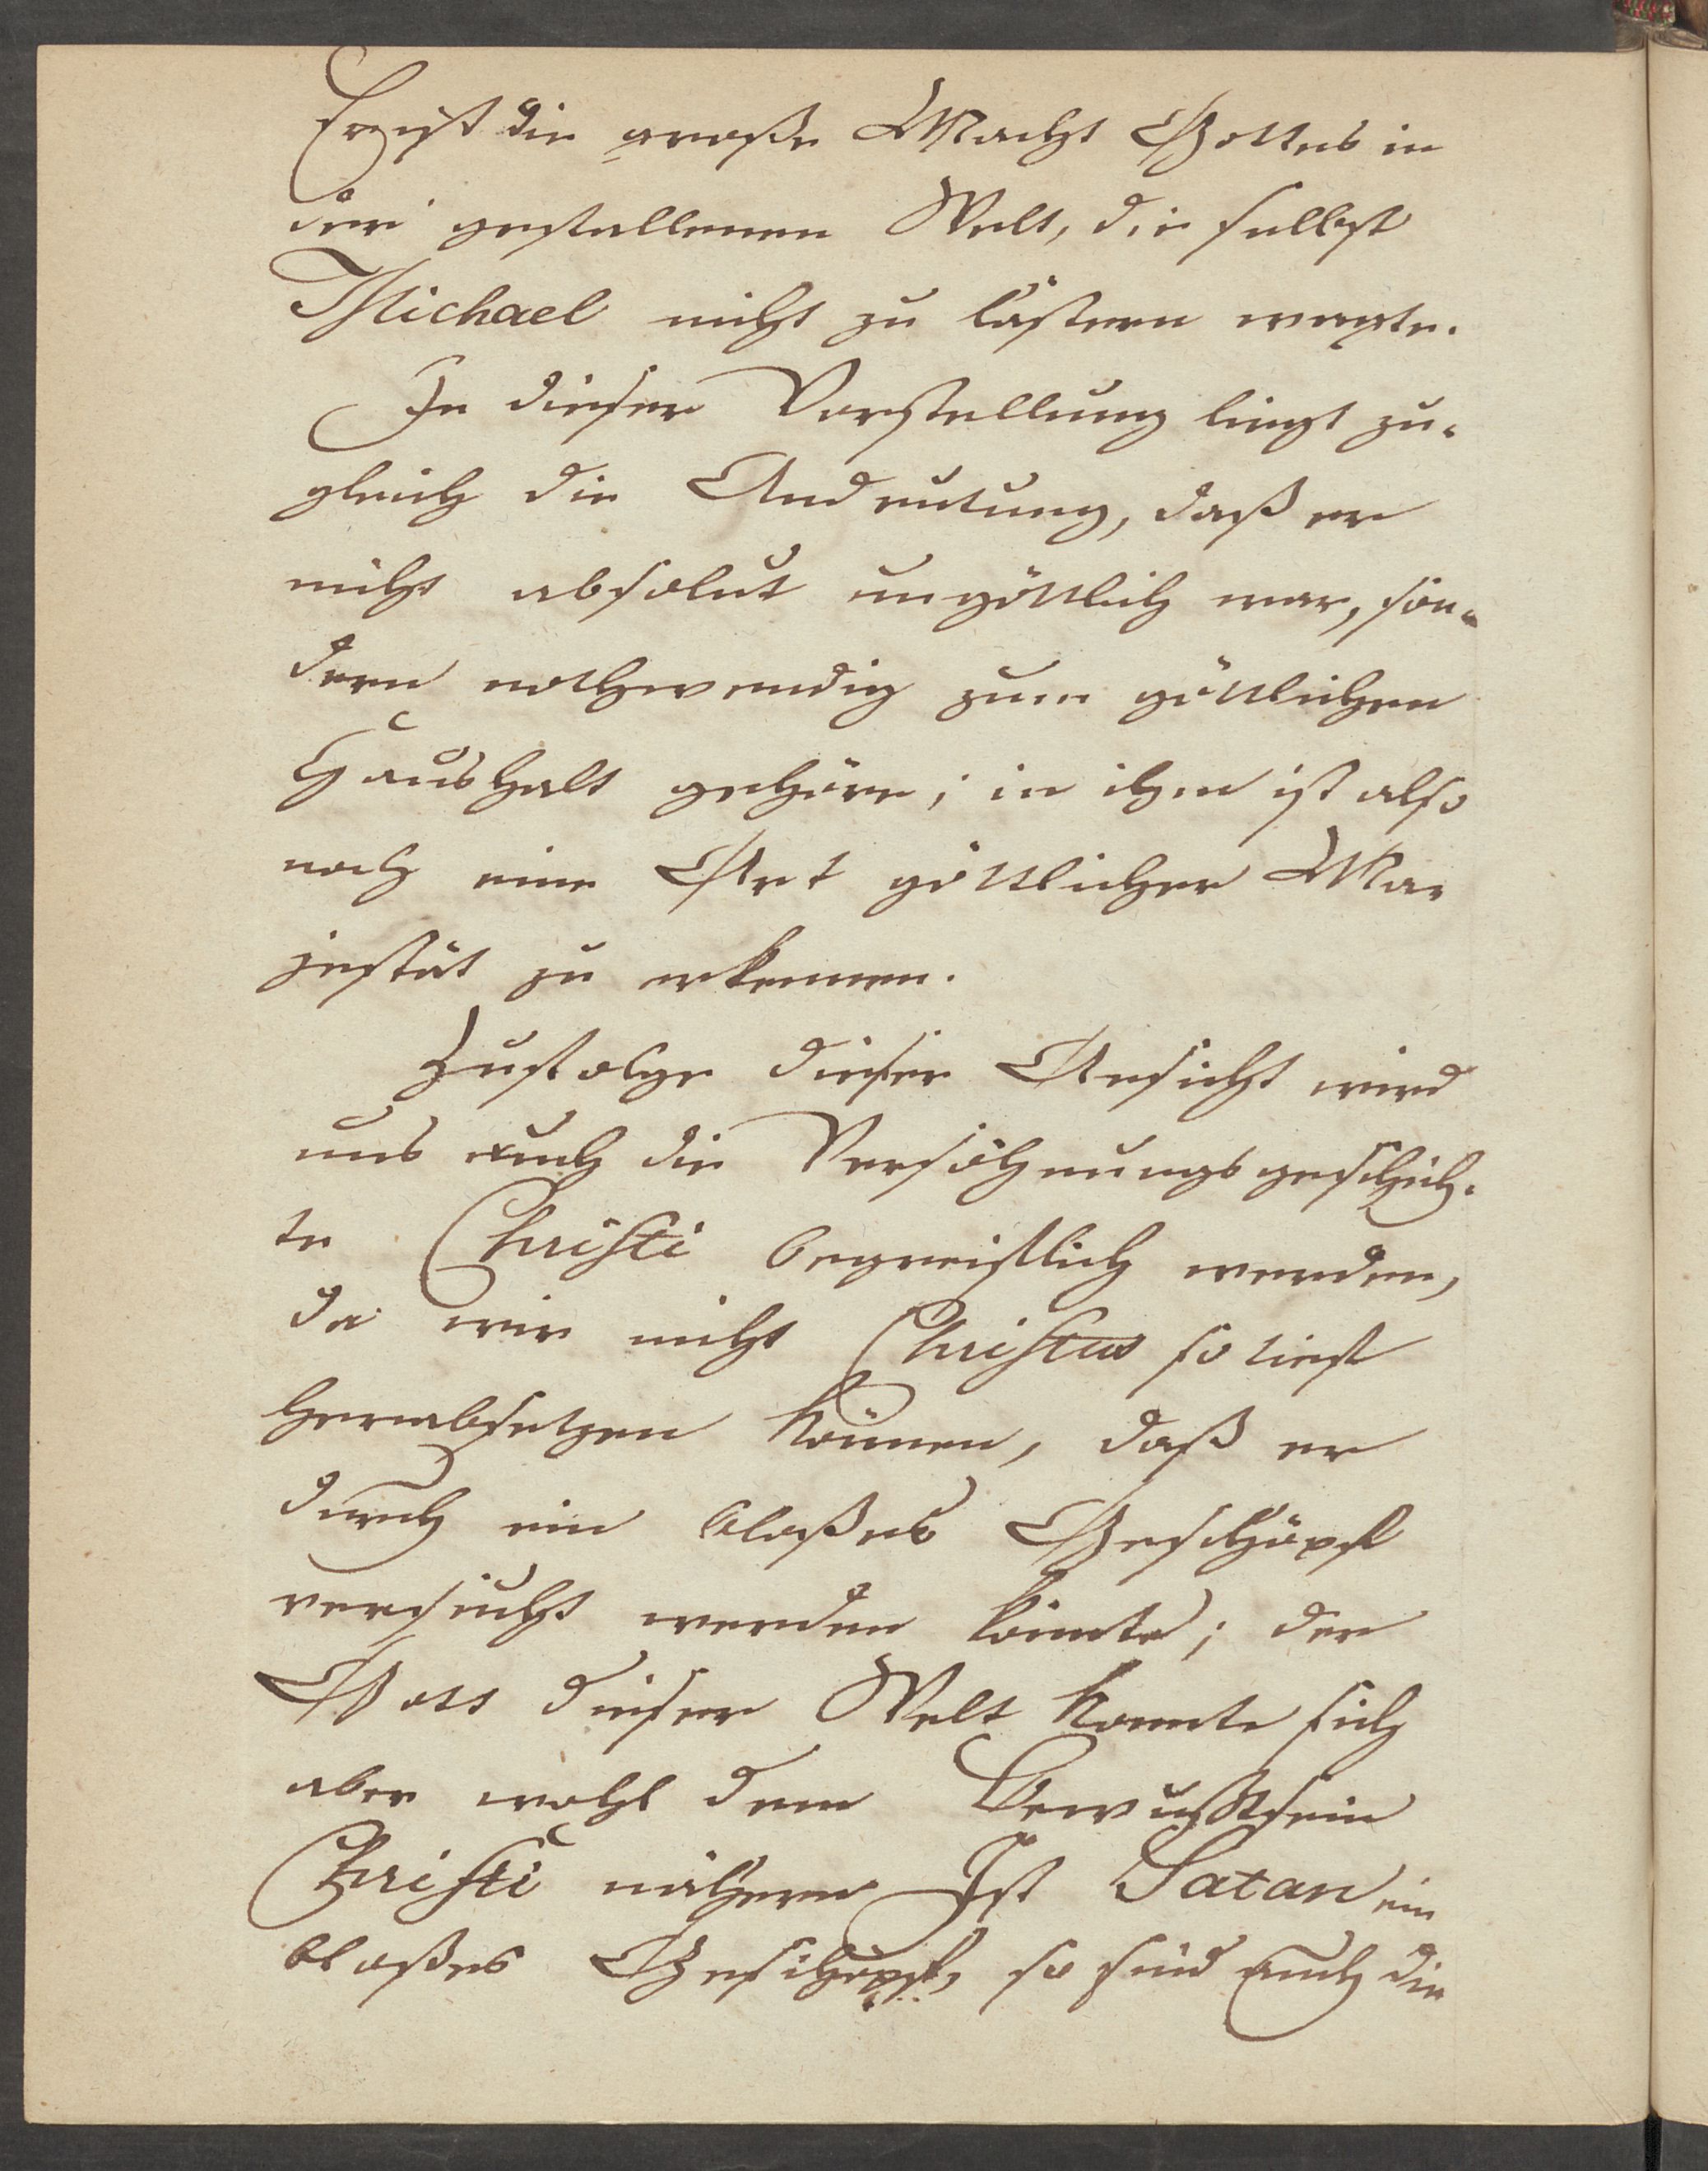 Er ist die große Macht Gottes in
der gefallenen Welt, die selbst
Michael nicht zu lästern wagte.
In dieser Vorstellung liegt zu-
gleich die Andeutung, daß er
nicht absolut ungöttlich war, son-
dern nothwendig zum göttlichen
Haushalt gehöre; in ihm ist also
noch eine Art göttlicher Ma-
jestät zu erkennen.
Zufolge dieser Ansicht wird
uns auch die Versöhnungsgeschich-
te Christi begreiflich werden,
da wir nicht Christus so tief
herabsetzen können, daß er
durch ein bloßes Geschöpf
versucht werden könnte; der
Gott dieser Welt konnte sich
aber wohl dem Bewußtsein
Christi nähern Ist Satan ein
bloßes Geschöpf, so sind auch die